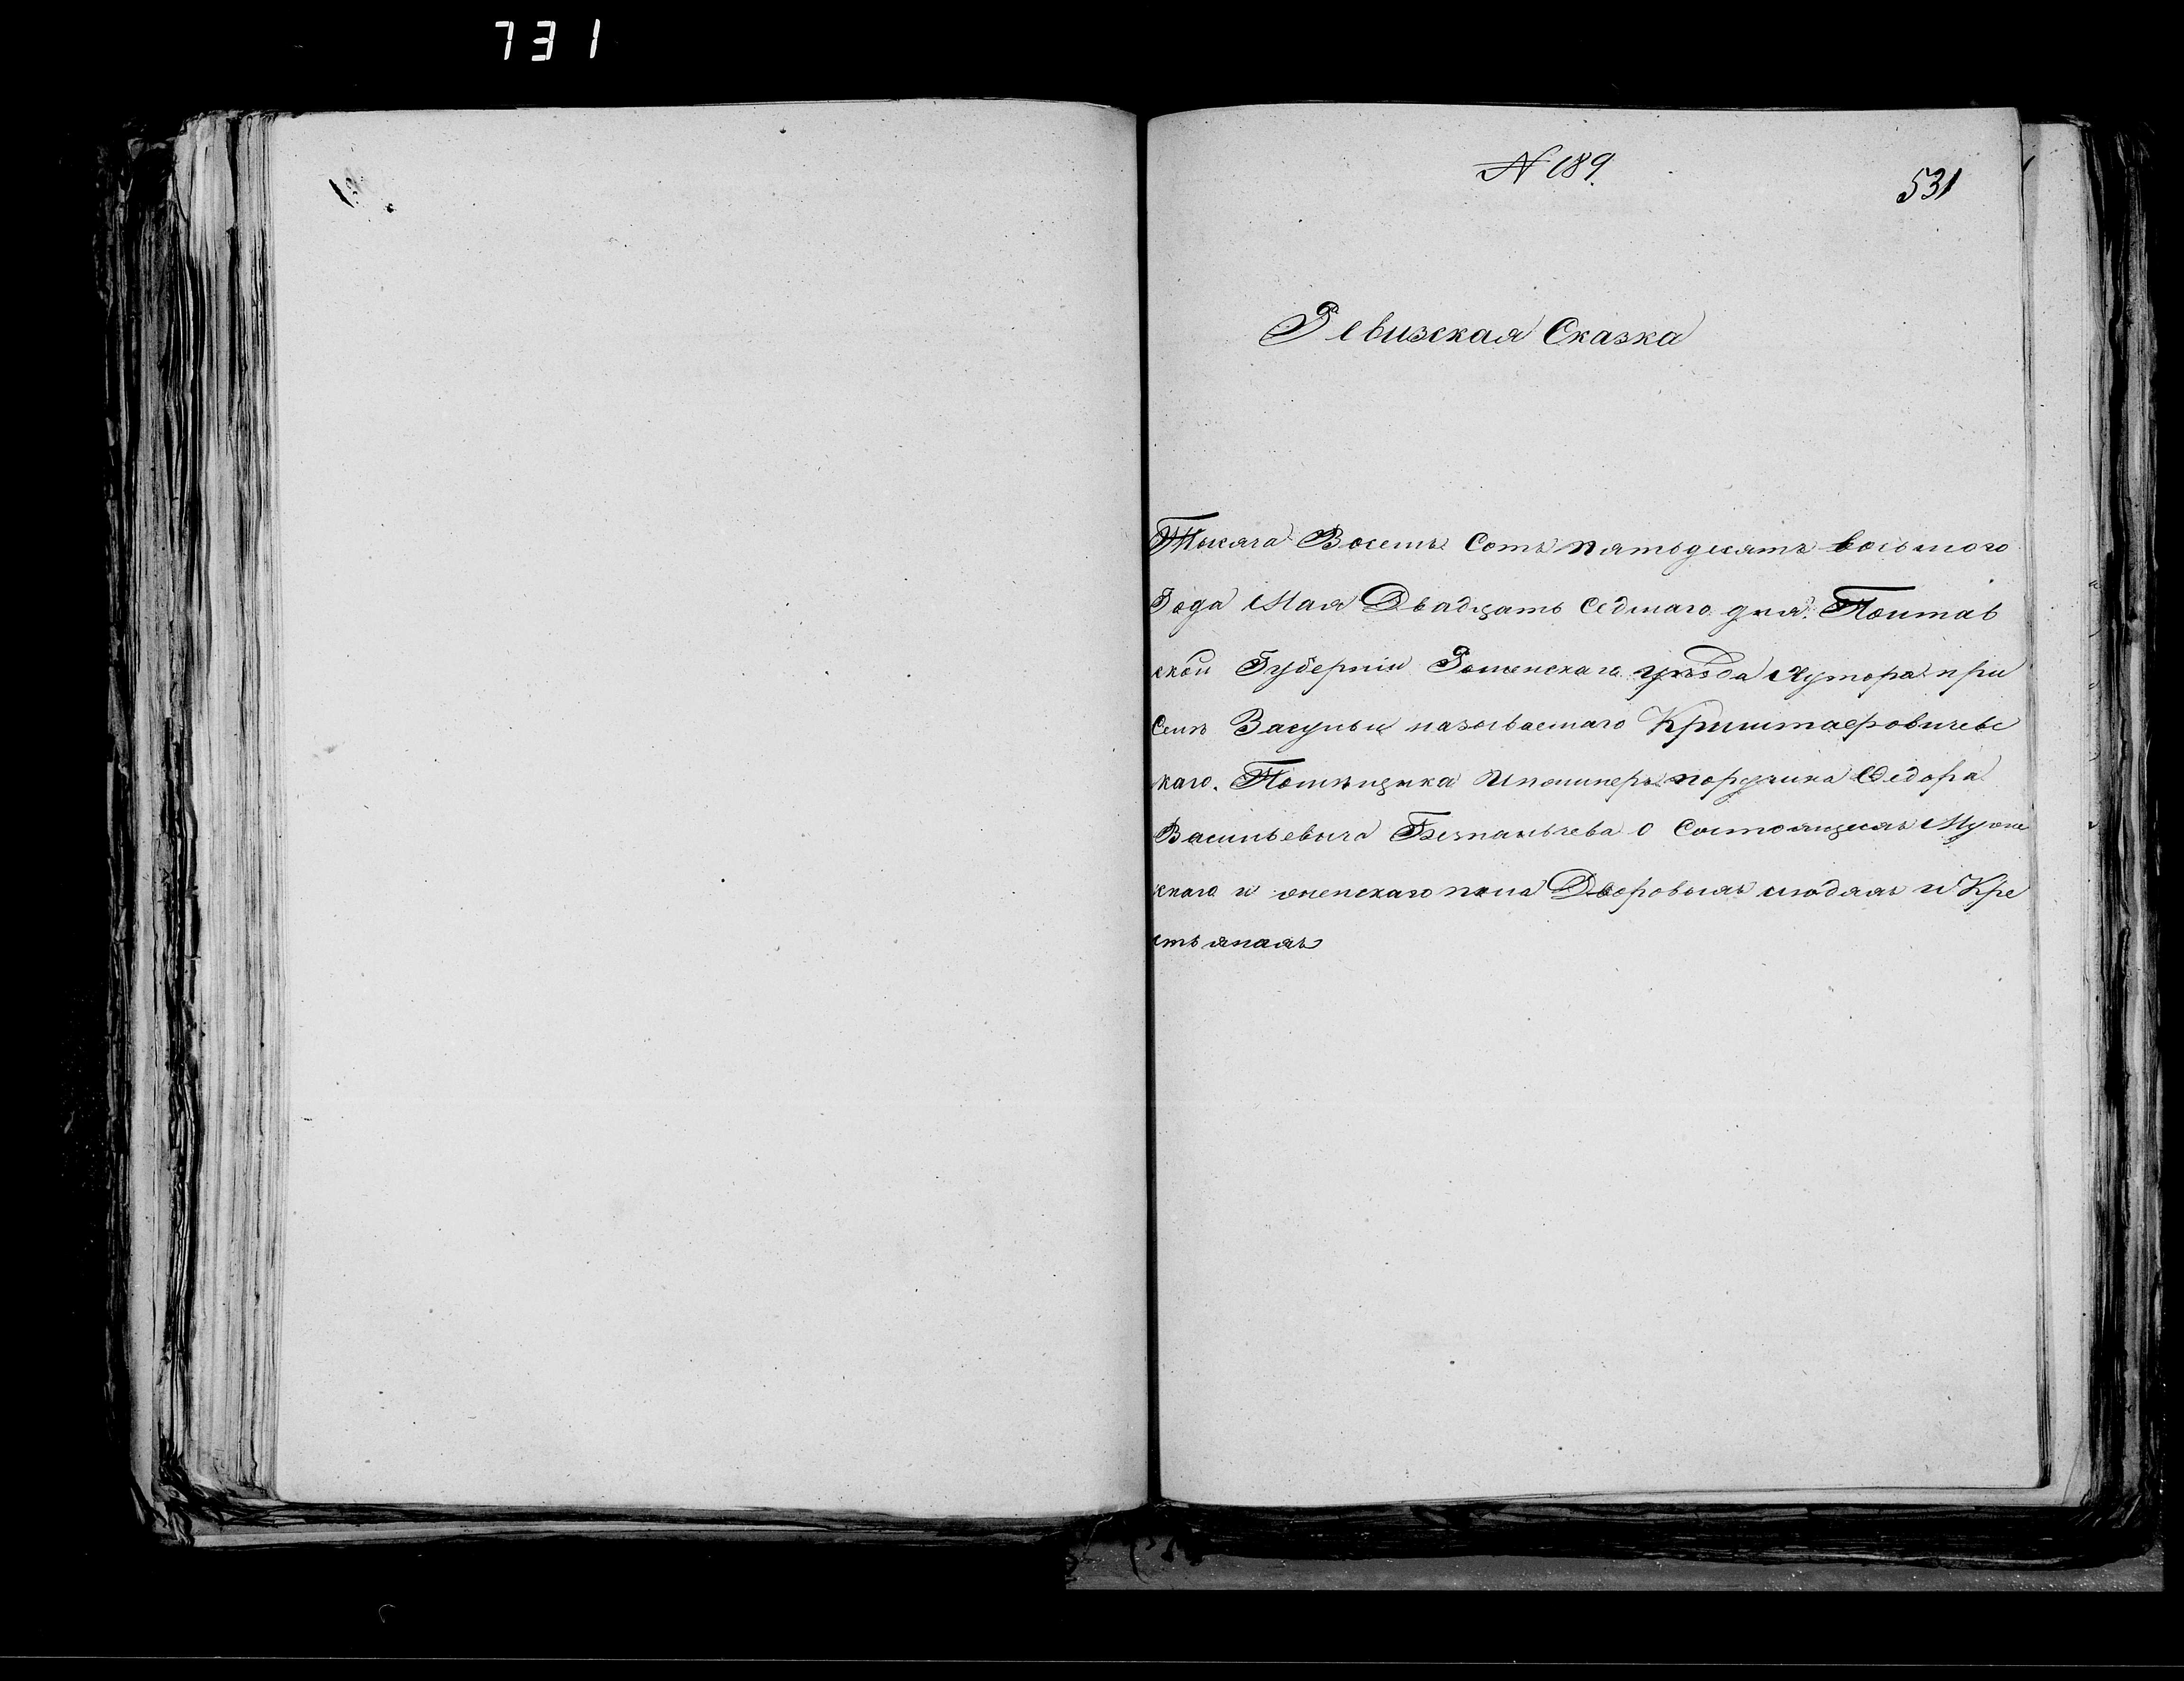 731
N 189.
531
Ревизская Сказка
Тысяча Восемь Сотъ пятьдесятъ восьмого
Года Мая Двадцать Седмаго дня. Полтав
ской Губерніи Роменскаго уѣзда Хутора при
Селѣ Засульи называемаго Криштаеровичевс
каго. Помѣщика Инженеръ поручика Ѳедора
Васильевича о Состоящихъ Муже
скаго и женскаго пола Дворовыхъ людяхъ и Кре
стьянахъ